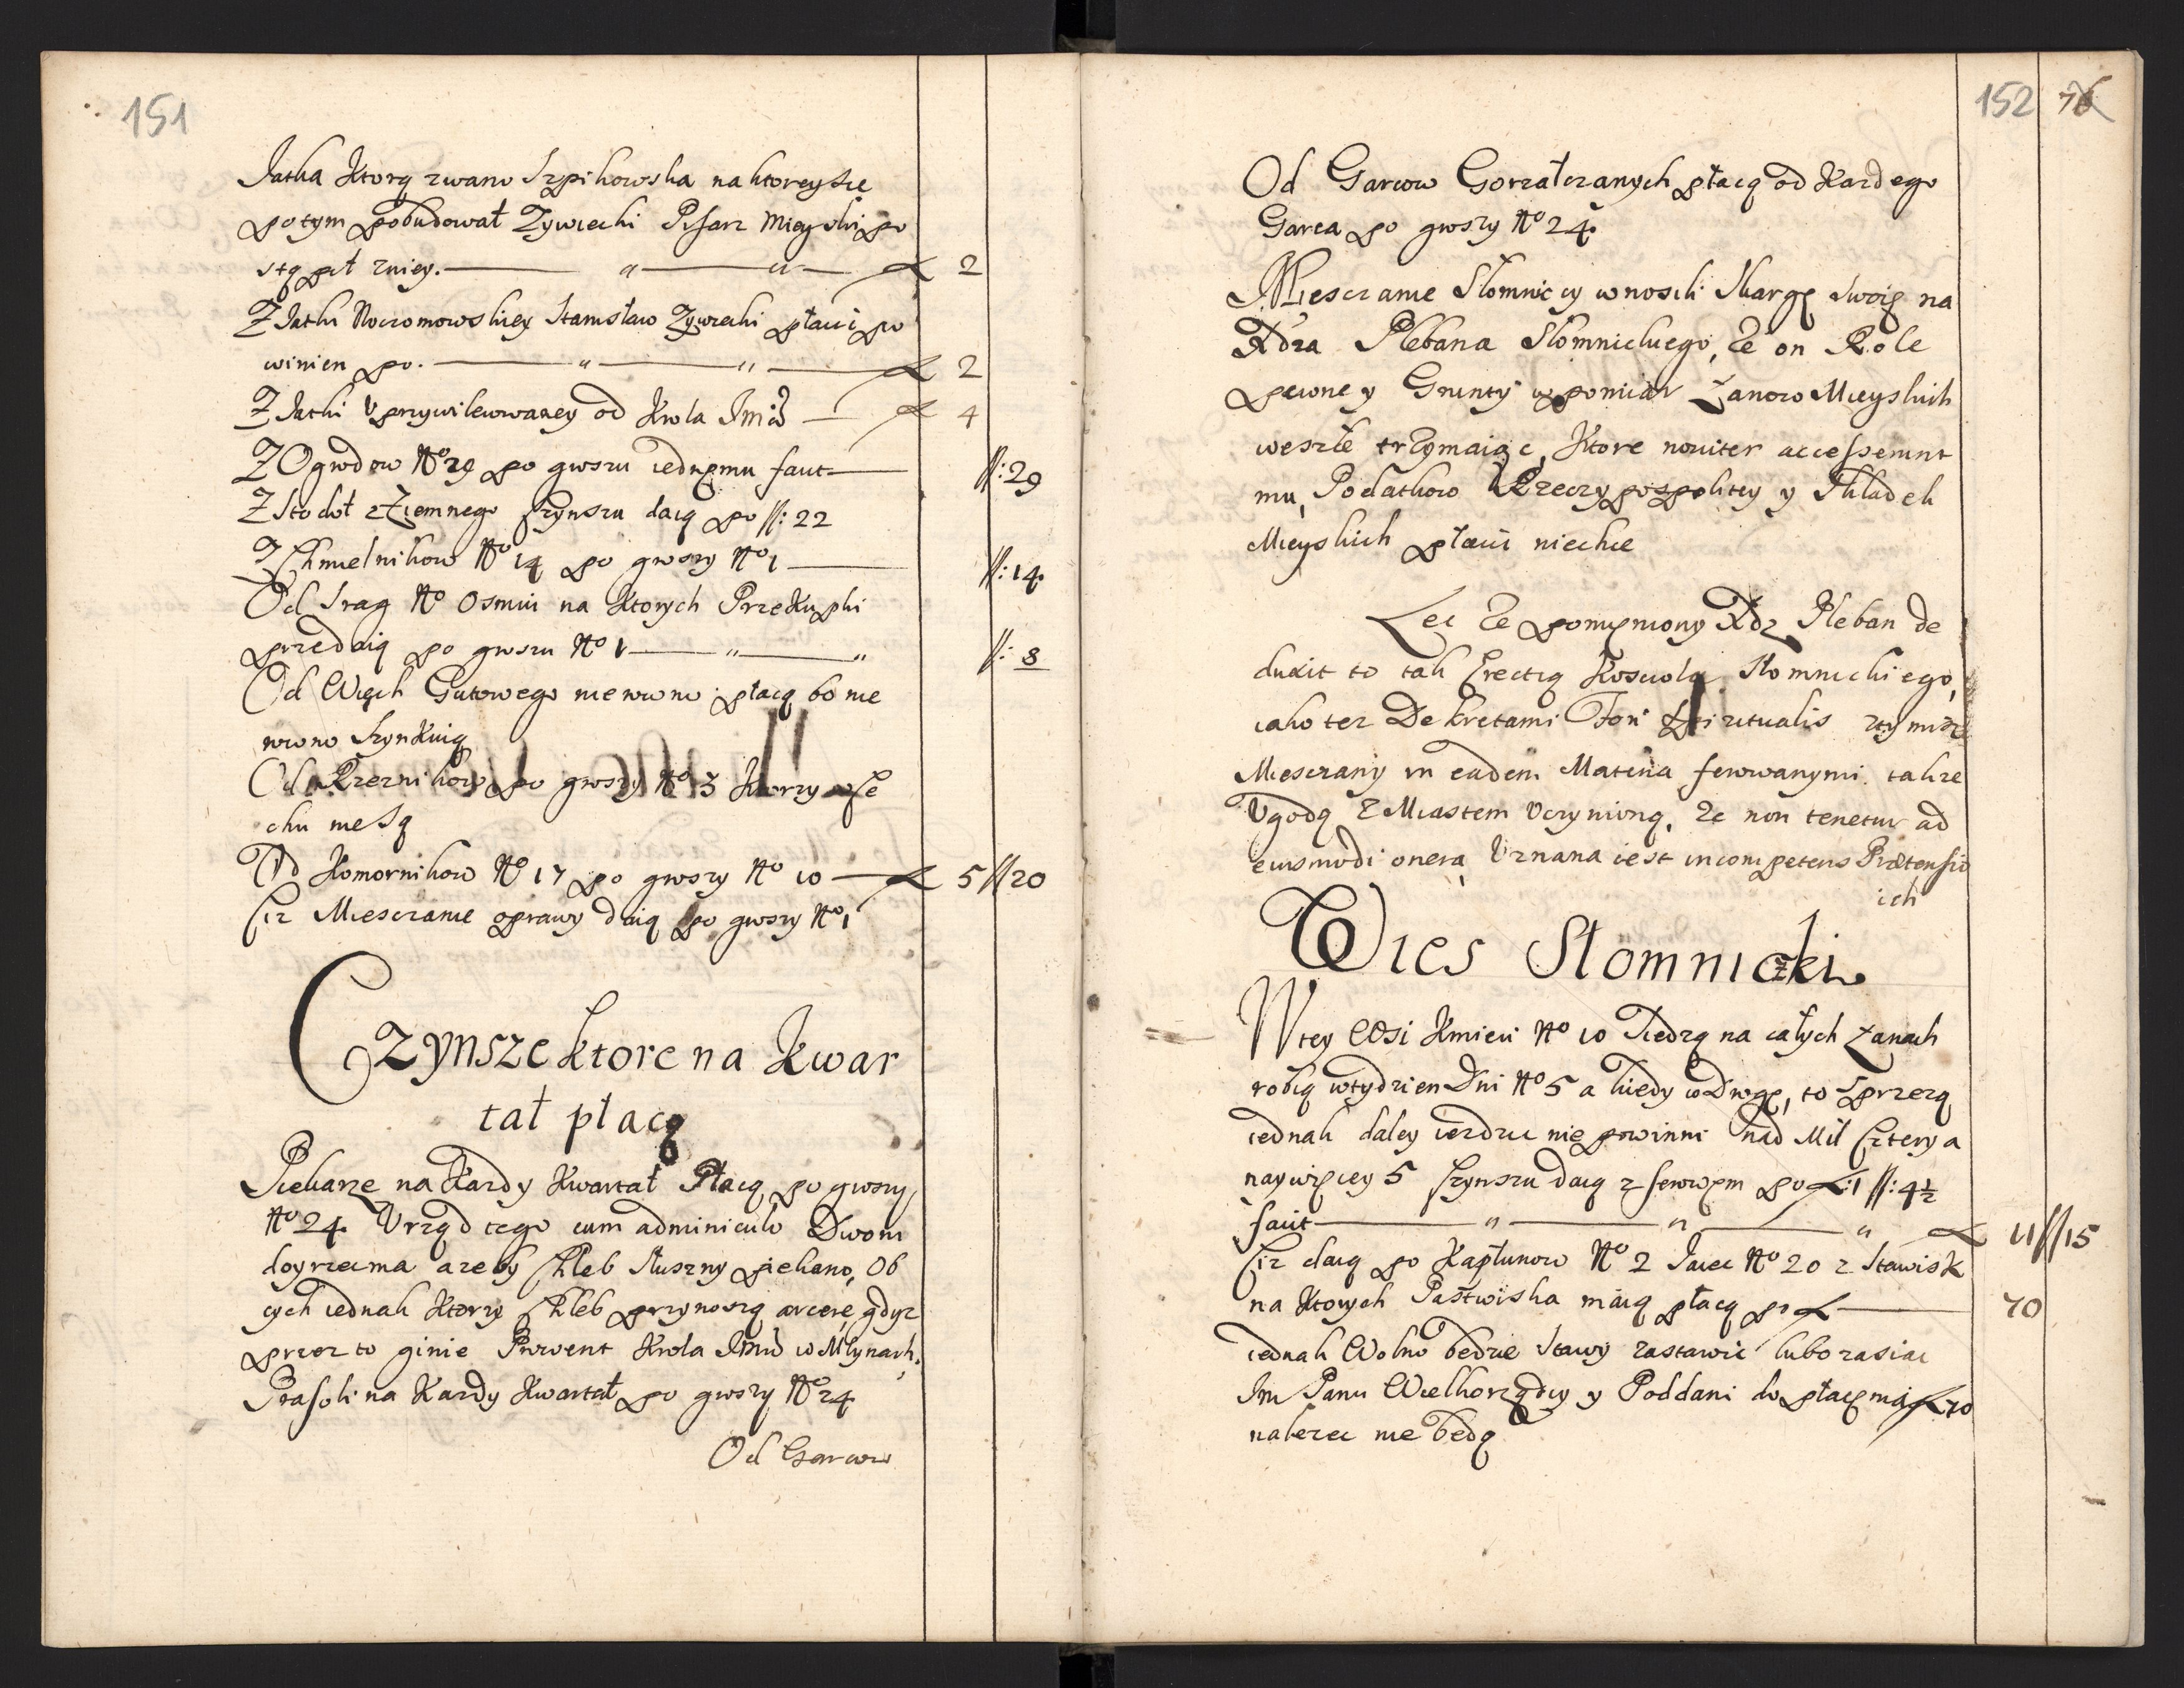 151
Jatka Ktorą zwano Szpikowska na ktoreysie
potym pobudował Zywiecki Pisarz Mieyski po
stąpił zniey. — " — " — 2
Z Jatki Stanisław Zywiecki płacic po
winien po. — " — " — 2
Z Jatki Uprzywilewowaney od Krola Jmci — 4
Z Ogrodow No 29 po groszu iednemu faut — //: 29
Z Stodoł z Ziemnego Czynszu daią po //: 22
Z Chmielnikow No 14 po groszy No 1 — //: 14
Od Srag No Osmiu na Ktorych Przekupki
przedaią po groszu No 1 — " — " //: 8
Od Gutowego nierowno płacą bo nie
rowno Szynkuią
Od Rzeznikow po groszy No 3 Ktorzy wse
chu nie Są
Od Komornikow No 17 po groszy No 10 — 5 // 20
Ciz Miesczanie oprawy daią po groszy No 1
Czynsze ktore na Kwar
tał płacą
Piekarze na Kazdy Kwartał Płacą po groszy
No 24. Urząd tego cum adminiculo Dworu
doyrzec ma azeby Chleb słuszny piekano, Ob
cych iednak Ktorzy Chleb przynoszą arcere, gdyz
przez to ginie Prowent Krola Jmci w Młynach.
Prasoli na Kazdy Kwartał po groszy No 24
Od Garcow
152 76
Od Garcow Gorzałczanych płacą od Kazdego
Garca po groszy No 24.
Miesczanie Słomniccy wnosili Skargę swoię na
Xdza Plebana Słomnickiego, Ze on Role
pewne y Grunty w pomiar Łanow Mieyskich
weszłe trzymaiąc, Ktore noviter accesserunt
mu, Podatkow Rzeczypospolitey y Składek
Mieyskich płacic niechce
Lec Ze pomieniony Xdz Pleban de
duxit to tak Erectią Koscioła Słomnickiego,
iako tez Dekretami Fori Spiritualis ztymiz
Miesczany in eadem Materia ferowanymi takze
Ugodą Z Miastem Uczynioną, Ze non tenetur ad
eiusmodi onera, Uznana iest incompetens Prætensio
ich
Wies Słomniczki
Wtey Wsi Kmieci No 10 Siedzą na całych Łanach
robią wtydzien Dni No 5 a kiedy w Drogę, to Sprzezą
iednak daley iezdzic nie powinni nad Mil Cztery a
naywięcey 5 Czynszu daią z serowem po 1 //: 4½
faut — " — " — " 11 // 15
Ciz daią po Kapłunow No 2 Jaiec No 20 z Stawisk
na Ktorych Pastwiska maią płacą po — 70
iednak Wolno będzie Stawy zastawic lubo zasiac
Jm Panu Wielkorządcy y Poddani do płacenia 70
nalezec nie będą